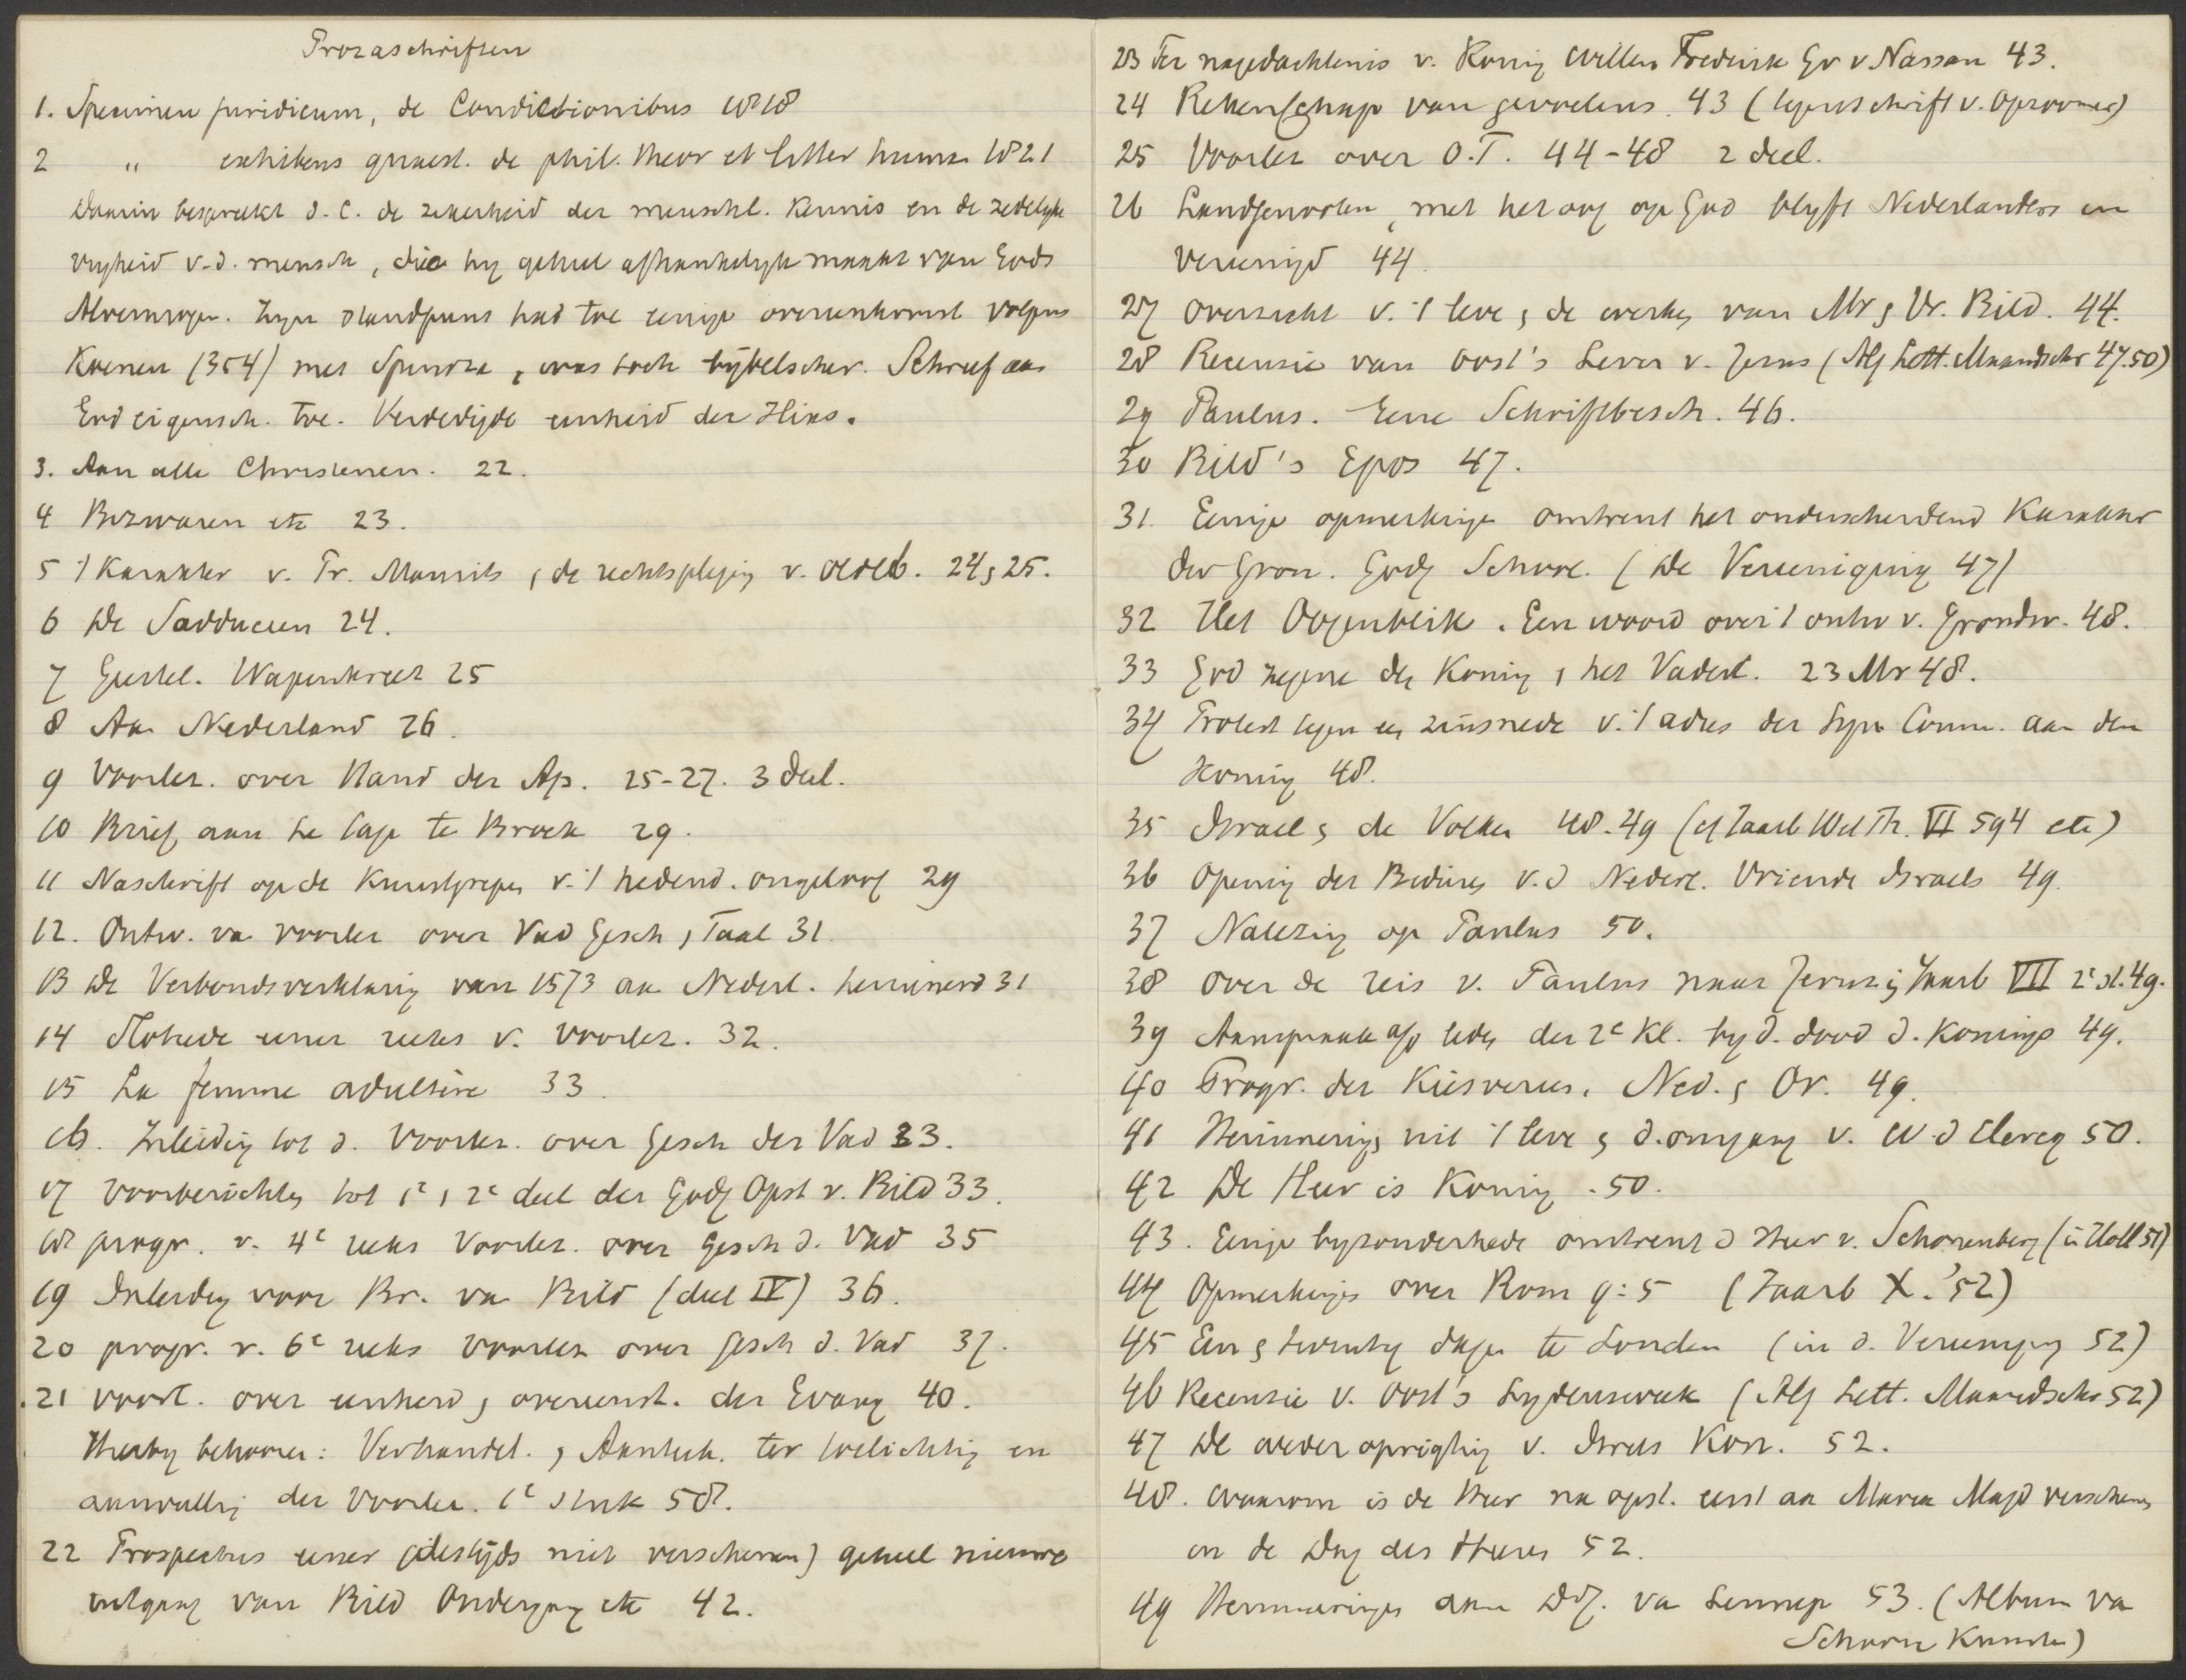 Prozaschriften
1. Specimen juridicum, de Condictionibus 1818
2 „ exhibens quaest. de phil. theor et litter human 1821
Daarin bespreekt d. C. de zekerheid der menschl. Kennis en de zedelyke
vryheid v.d. mensch, die hy geheel afhankelyk maakt van Gods
Alvermogen. Zyn standpunt had toe eenige overeenkomst volgens
Koenen (354) met Spinoza, was toch bijbelscher. Schreef aan
God eigensch. toe. Verdedigde eenheid der Hias.
3. Aan alle Christenen. 22.
4 Bezwaren etc 23.
5 't Karakter v. Pr. Maurits, de rechtspleging v. Oldeb. 24, 25.
6 De Sadduceen 24.
7 Geestel. Wapenkreet 25
8 Aan Nederland 26.
9 Voorlez. over Hand der Ap. 25-27. 3 deel.
10 Brief aan Le Lage te Broek 29.
11 Naschrift op de Kunstgrepen v. 't hedend. ongeloof 29
12. Ontw. van voorlez over Vad Gesch, Taal 31
13 De Verbondsverklaring van 1573 aan Nederl. herinnerd 31
14 Slotrede eener reeks v. voorlez. 32.
15 La femme adultère 33.
16. Inleiding tot d. Voorlez. over Gesch der Vad 33.
17 voorberichten tot 1e, 2e deel der Godg Opst v. Bild 33.
18 progr. v. 4e reeks Voorlez. over Gesch d. Vad 35
19 Inleiding voor Br. van Bild (deel IV) 36.
20 progr. v. 6e reeks voorlez over Gesch d. Vad 37.
21 voorl. over eenheid, overeenst. der Evang 40.
Hierby behooren: Verhandel., Aanteek. ter toelichting en
aanvulling der Voorlez. 1e stuk 58.
22 Prospectus eener (destijds niet verschenen) geheel nieuwe
uitgaaf van Bild Ondergang etc 42.
23 Ter nagedachtenis v. Koning Willem Frederik Gr v Nassau 43.
24 Rekenschap van gevoelens. 43 (tegenschrift v. Opzoomer)
25 Voorlez over O.T. 44-48 2 deel.
26 Landgenooten, met het oog op God blyft Nederlanders en
vereenigd 44.
27 Overzicht v. 't leve, de werken van Mr, Vr. Bild. 44.
28 Recensie van Oost's Leven v. Jezus (Alg Lett. Maandschr 47.50)
29 Paulus. Eene Schriftbesch. 46.
30 Bild's Epos 47.
31. Eenige opmerkingen omtrent het onderscheidend Karakter
der Gron. Godg School. (De Vereeniging 47)
32 Het Oogenblik. Een woord over 't ontw v. Grondw. 48.
33 God zegene den Koning, het Vaderl. 23 Mr 48.
34 Protest tegen een zinsnede v. 't adres der Syn Comm. aan den
Koning 48.
35 Israel, de Volken 48-49 (cf Jaarb Wet Th. VI 594 etc)
36 Opening der Bidures v.d Nederl. Vriende Israels 49.
37 Nalezing op Paulus 50.
38 Over de reis v. Paulus naar Jeruz; Jaarb VII 2e st. 49.
39 Aanspraak a/d leden der 2e Kl. by d. dood d. Konings 49.
40 Progr. der Kiesveren. Ned., Or. 49.
41 Herinnering, uit 't leve, d. omgang v. W. d Clercq 50.
42 De Heer is Koning. 50.
43. Eenige byzonderhede omtrent d Heer v. Schonenberg (in Holl 51)
44 Opmerkingen over Rom 9:5 (Jaarb X. '52)
45 Een, twintig dagen te Londen (in d. Vereeniging 52)
46 Recensie v. Oost's Lydensweek (Alg Lett. Maandschr 52)
47 De wederoprigting v. Israels Kon. 52.
48. Waarom is de Heer na opst. eerst aan Maria Magd verschenen
en de Dag des Heeren 52.
49 Herinneringen aan D.J. van Lennep 53. (Album van
Schoone Kunsten)